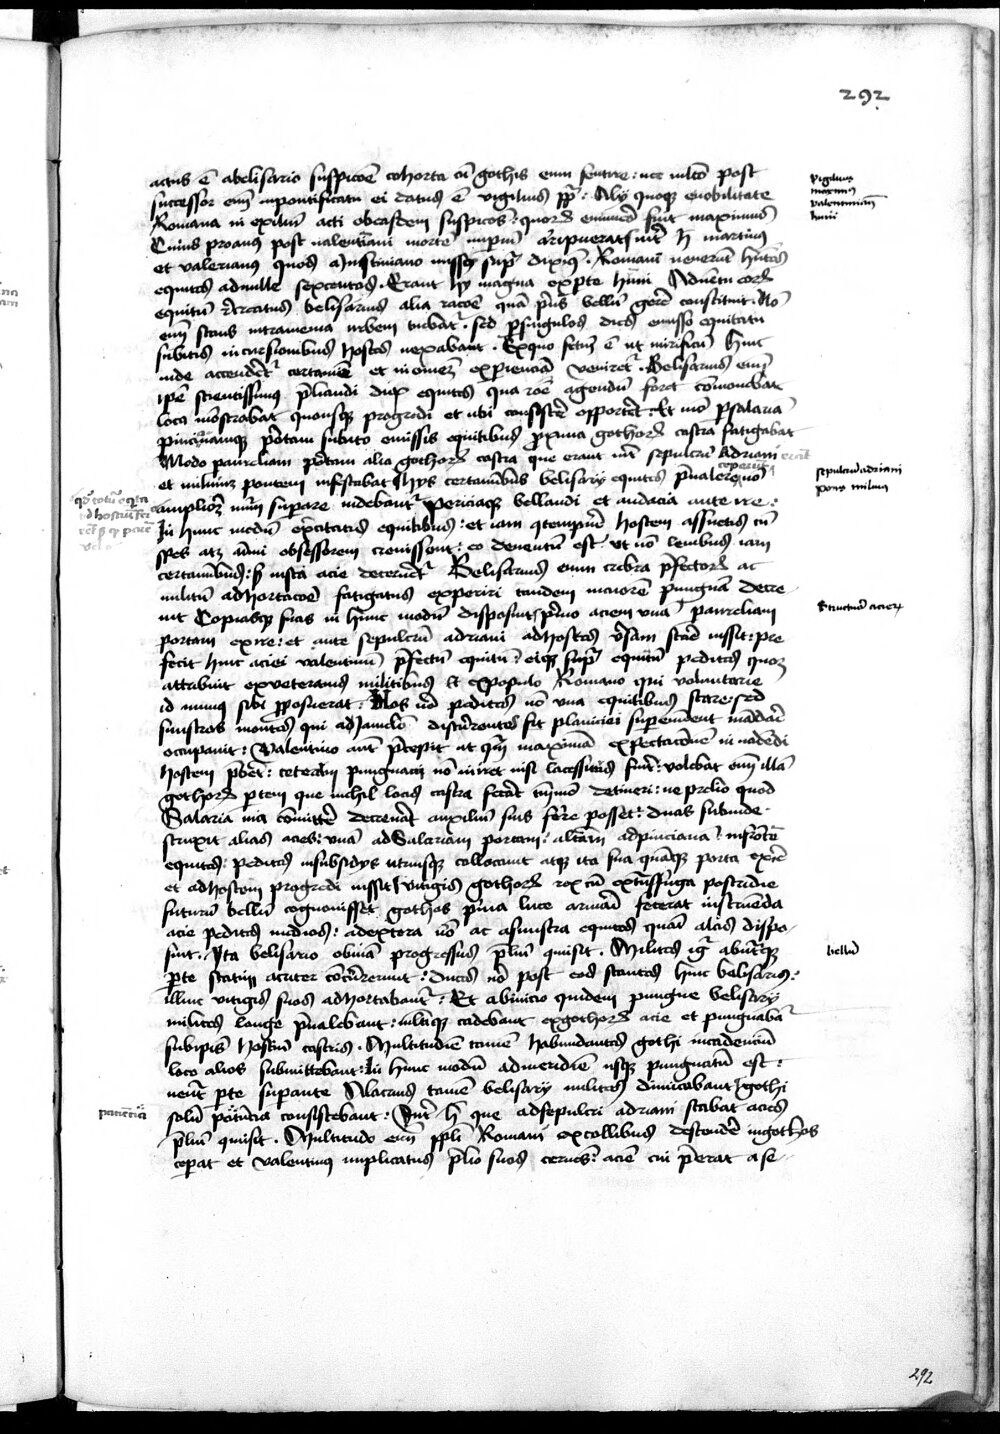 292
actus ē abelisario suspicoē cohorta cū gothis eum sentire: nec multo post
successor eiꝰ inpontificatu ei datus ē vigilius pp̄: Alij quoque enobilitate
Romana in exiliū acti obeasdem suspicoēs: quorꝫ fuit maximus
Cuius proauus post ualentiniani mortē imperiū arripuerat
et valerianus quos aJustiniano missos supra diximus. Romam uenerūt
equites admille sexcentos. Erant hij magna exparte huni Aduentu eorꝫ
equitū recreatus belisarius alia racoē quā prius bellū gerere constituit. Nō
enī stans intramenia urbem tutabat'. sed persingulos dies emisso equitatu
subitis incursionibus hostes uexabant. Exquo factū ē ut mirificū hinc
inde accenderet' certamē et inomneꝫ experienciā veniret'. Belisarius enī
ipse scientissimus preliandi dux equites qua rōe agendū foret cōmonebat
loca mōstrabat quousque progredi et ubi consistere opporteret: Et mō persalariā
pincianamque portam subito emissis equitibus proxima gothorꝫ castra fatigabat
Modo paureliam portam alia gothorꝫ castra que erant int' sepulcrū Adriani
et miluiuꝫ pontem infestabat hijs certaminibus belisarij equites preualere nō
ampliorꝫ superare uidebant' Periciaque bellandi et audacia anteire:
In hunc modū exercitatis equitibus: et iam hostem assuetis cū
spes atꝫ animi obsessorem creuissent: eo deuentū est ut nō leuibus iam
certaminibus: sꝫ iusta acie decerneret' Belisarius enim crebra prefectorꝫ ac
militū adhortacoē fatigatus experiri tandem maiorē pungnā decre-
uit Copiasque suas in hunc modū disposuit primo aciem vnā paureliam
portam exire: et ante sepulcrū adriani adhostes versam stare iussit: pre
fecit huic aciei valentinū prefectū equitū: eique supra equitū pedites quoꝫ
attribuit exveteranis militibus et expopulo Romano qui voluntarie
id munus sibi proposuerat: Nos nō pedites nō vna equitibus stare: sed
sinistros montes qui adJaniclō discurrentes sit planiciei superemineret
occupauit: Valentino aut precepit ut qm̄ maximā expectacionē inuadendi
hostem preberet: ceterum pungnam nō iniret nisi lacessitus fuerit: volebat enī illā
gothorꝫ partem que nichil locis castra fecerāt detineri: ne prelio quod
Salaria uia cōmittere decreuerat auxiliū suis ferre posset: duas subinde
struxit alias acies: vnā adSalariam portam: alteram adpincianā: infronte
equites: pedites insubsidijs utriusque collocauit atque ita sua quāque porta exire
et adhostem progredi iussit vitigis gothorꝫ rex cū extrāsfuga postridie
futurū bellū cognouisset gothos prima luce armari fecerat instruenda
acie pedites medios: adextera nō ac asinistra equites quasi alas dispo-
suit. Ita belisario obuiā progressus preliū quisit. Milites
parte statim acriter concurrerunt: duces nō post eos stantes hinc belisarius:
illinc vitigis suos adhortabant': Et abinicio quidem pungne belisarij
milites longe preualebant: multique cadebant exgothorꝫ acie et pungnabat'
subipsis hostiū castris. Multitudine tamen habundantes gothi incadenciū
loco alios submittebant: In hunc modū admeridiē usque pungnatū est:
neut' parte superante Alacrius tamē belisarij milites dimicabant gothi
solū paciencia consistebant: Int' hꝫ que adsepulcri adriani stabat acies
preliū quisit. Multitudo enī populi Romani excollibus descendere ingothos
ceperat et valentinus implicatus prelio suos aciē cui preerat ase
Vigilius
maximus
valentinianus
huni
sepulcrū adriani
pons miluius
Structura acierꝫ
bellum
paciencia
292